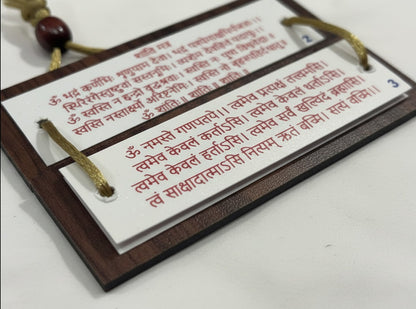 शांति मंत्र
ॐ भद्रं कर्णेभिः शृणुयाम देवाः। भद्रं पश्येमाक्षभिर्यजत्राः।।
स्थिरैरङ्गैस्तुष्टुवाँसस्तनूभिः। व्यशेम देवहितं यदायुः।
ॐ स्वस्ति न इन्द्रो वृद्धश्रवाः। स्वस्ति नः पूषा विश्ववेदाः।
स्वस्ति नस्तार्क्ष्यो अरिष्टनेमिः। स्वस्ति नो बृहस्पतिर्दधातु॥
ॐ शांतिः। शांतिः॥ शांतिः॥।
2
ॐ नमस्ते गणपतये।। त्वमेव प्रत्यक्षं तत्त्वमसि।
त्वमेव केवलं कर्ताऽसि। त्वमेव केवलं धर्ताऽसि।
त्वमेव केवलं हर्ताऽसि। त्वमेव सर्वं खल्विदं ब्रह्मासि।
त्वं साक्षादात्माऽसि नित्यम् ऋतं वच्मि। सत्यं वच्मि।।
3